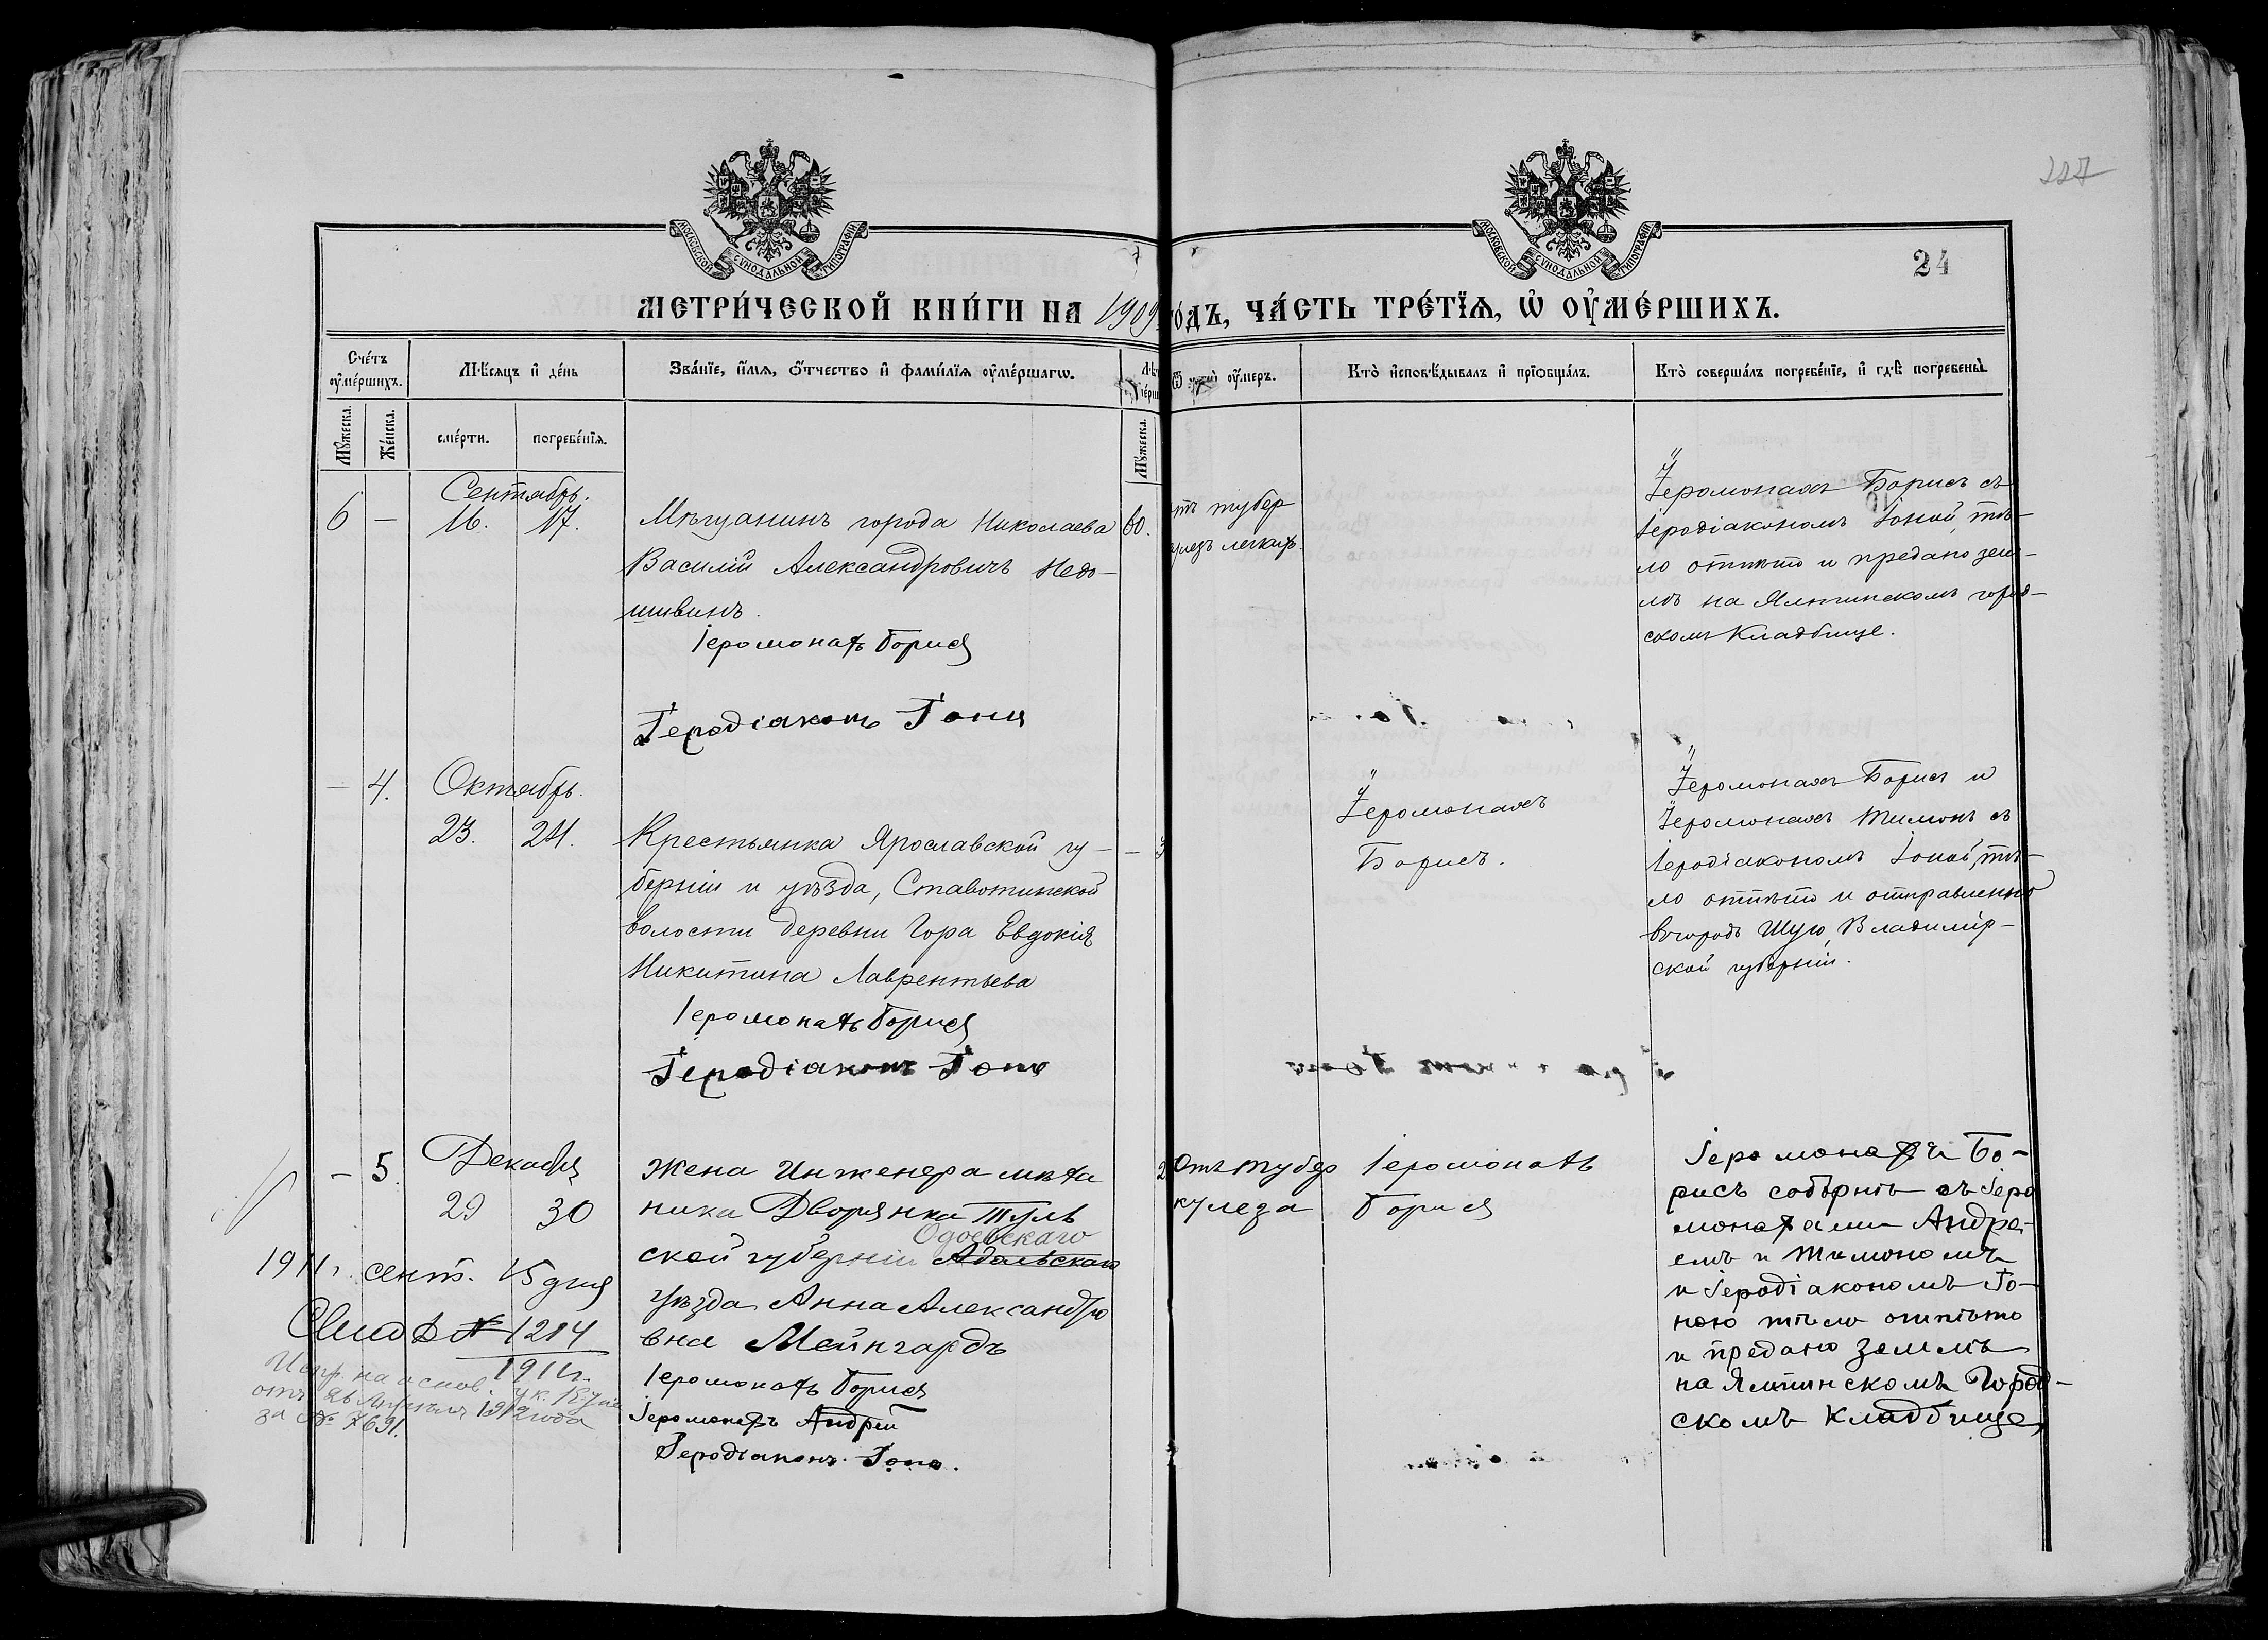 227
МОСКОВСКОЙ СѴНОДАЛЬНОЙ ТИПОГРАФІИ
МОСКОВСКОЙ СѴНОДАЛЬНОЙ ТИПОГРАФІИ
24
МЕТРИ́ЧЕСКОЙ КНИ́ГИ НА 1909
О́ДЪ, ЧА́СТЬ ТРЕ́ТЇѦ, Ѡ҆ ОУ҆МЕ́РШИХЪ.
Сче́тъ оу҆ме́ршихъ.
Мѣ́сѧцъ и҆ де́нь
Зва́нїе, и҆́мѧ, ѻ҆́тчество и҆ фами́лїѧ оу҆ме́ршагѡ.
оу҆́меръ.
Кто̀ и҆сповѣ́дывалъ и҆ прїѻбща́лъ.
Кто̀ соверша́лъ погребе́нїе, и҆ гдѣ̀ погребены̀.
Мꙋ́жеска.
Же́нска.
сме́рти.
погребе́нїѧ.
Мꙋ́жеска.
6 —
Сентябрь.
16. 17.
Мѣщанинъ города Николаева
Василій Александровичъ Недо-
шивинъ.
Іеромонахъ Борисъ
Іеродіаконъ Іона
60.
отъ тубер
кулезъ легкихъ.
Іеромонахъ Борисъ съ
Іеродіакономъ Іоной, тѣ-
ло отпѣто и предано зем-
лѣ на Ялтинскомъ город-
скомъ Кладбище.
— 4.
Октябрь.
23. 24.
Крестьянка Ярославской гу-
берніи и уѣзда, Ставотинской
волости деревни Гора Евдокія
Никитина Лаврентьева
Іеромонахъ Борисъ
Іеродіаконъ Іона
—
Іеромонахъ
Борисъ.
Іеромонахъ Борисъ и
Іеромонахъ Тимонъ съ
Іеродіакономъ Іоной, тѣ-
ло отпѣто и отправленно
вгородъ Шую, Владимір-
ской губерніи.
— 5.
Декабря
29 30
Жена Инженера меха
ника Дворянка Туль
Одоевскаго
ской губерніи Адольскаго
Уѣзда Анна Александро
вна Мейнгардъ
Іеромонахъ Борисъ
Іеромонахъ Андрей
Іеродіаконъ Іона.
2
Отъ тубер
кулеза
Іеромонахъ
Борисъ
Іеромонахъ Бо-
рисъ соборнѣ съ Іеро
монахами Андре-
емъ и Тимономъ
и Іеродіакономъ Іо-
ною тѣло отпѣто
и предано землѣ
на Ялтинскомъ Город-
скомъ кладбище,
1911 г. сент. 15 дня
Свид. № 1214
1911 г.
Испр. на основ. ук.
отъ Апрѣля 1912 года
за № 7691.